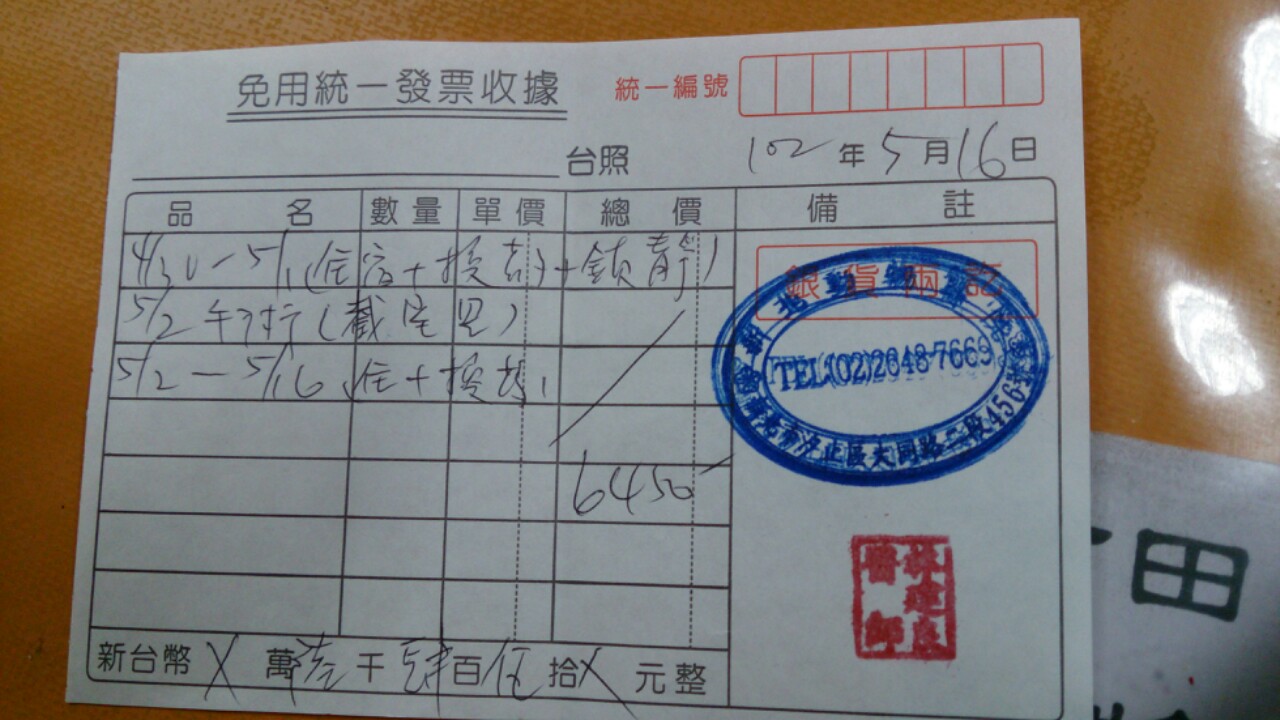 免用統一發票收據
統一編號
台照
102 年 5 月 16 日
品名 數量 單價 總價 備註
4/30-5/1(住宿+換葯+鎮靜)
5/2
5/2-5/16 住+換葯
6450
銀貨兩訖
TEL:(02)2648-7669
新北市汐止區大同路二段456號
醫師
新台幣 X 萬 陸 千 肆 百 伍 拾 X 元整
田